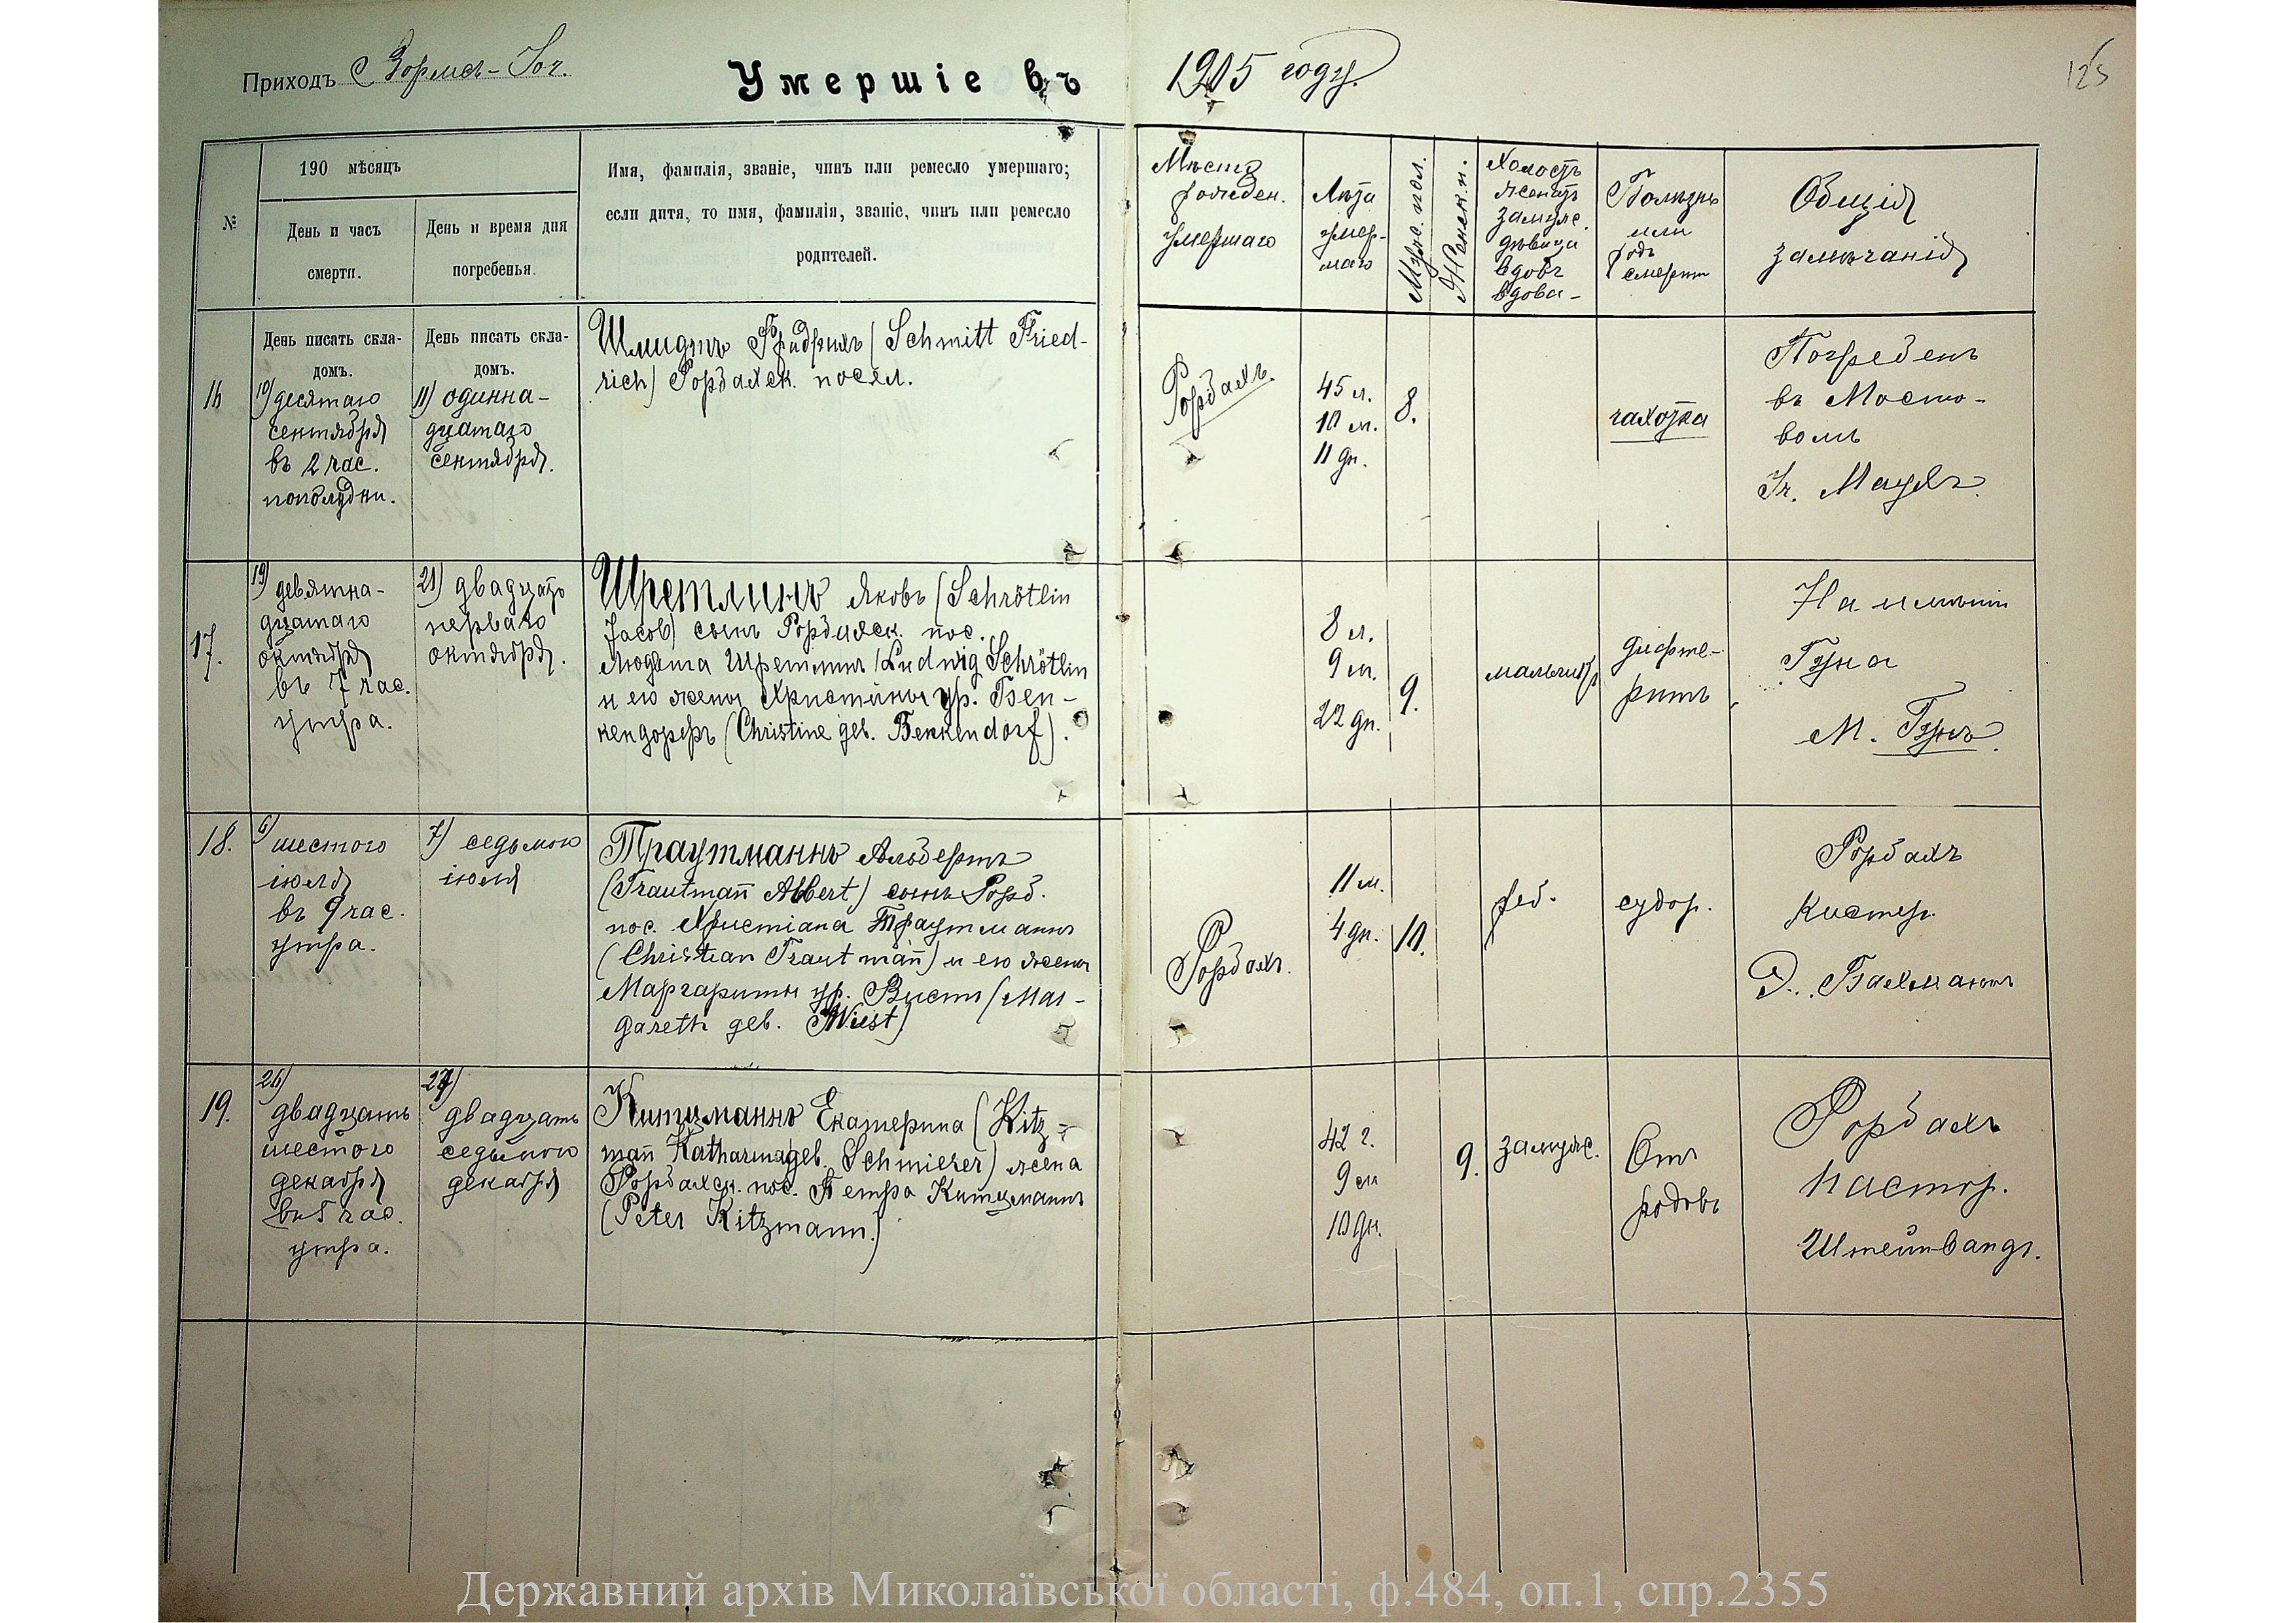 Приходъ Вормсъ-Іог.
Умершіе въ 1905 году.
125
№
190 мѣсяцъ
День и часъ
смерти.
День и время дня
погребенья.
Имя, фамилія, званіе, чинъ или ремесло умершаго;
если дитя, то имя, фамилія, званіе, чинъ или ремесло
родителей.
Мѣсто
рожден.
умершаго
Лѣта
умер-
шаго
Мужс. пол.
Женск. п.
Холостъ
женатъ
замужс.
дѣвица
вдовъ
вдова-
Болѣзнь
или
родъ
смерти
Общія
замѣчанія
День писать скла-
домъ.
День писать скла-
домъ.
16
10) десятаго
сентября
въ 2 час.
пополудни.
11) одинна-
дцатаго
сентября.
Шмидтъ Фридрихъ (Schmitt Fried-
rich) Рорбахск. посел.
Рорбахъ.
45 л.
10 м.
11 дн.
8.
чахотка
Погребенъ
въ Мосто-
вомъ
17.
19) девятна-
дцатаго
октября
въ 7 час.
утра.
21) двадцать
перваго
октября.
Шретлинъ Яковъ (Schrötlin
Jacob) сынъ Рорбахск. пос.
Людвига Шретлинъ (Ludwig Schrötlin
и его жены Христины ур. Бен-
кендорфъ (Christine geb. Benkendorf).
8 л.
9 м.
22 дн.
9.
мальчикъ
дифте-
ритъ
На имѣніи
18.
6) шестого
іюля
въ 9 час.
утра.
7) седьмого
іюля
Траутманнъ Альбертъ
(Trautmañ Albert) сынъ Рорб.
пос. Христіана Траутманнъ
(Christian Trautmañ) и его жены
Маргариты ур. Вистъ (Mar-
gareth geb. Wiest)
Рорбахъ.
11 м.
4 дн.
10.
реб.
судор.
Рорбахъ
Кистер.
Э. Бахманнъ
19.
26)
двадцать
шестого
декабря
въ 5 час.
утра.
27)
двадцать
седьмого
декабря
Китцманнъ Екатерина (Kitz-
mañ Katharina geb. Schmierer) жена
Рорбахск. пос. Петра Китцманнъ
(Peter Kitzmann.)
42 г.
9 м
10 дн.
9.
замужс.
Отъ
родовъ
Рорбахъ
пастор.
Штейнвандъ.
Державний архів Миколаївської області, ф.484, оп.1, спр.2355